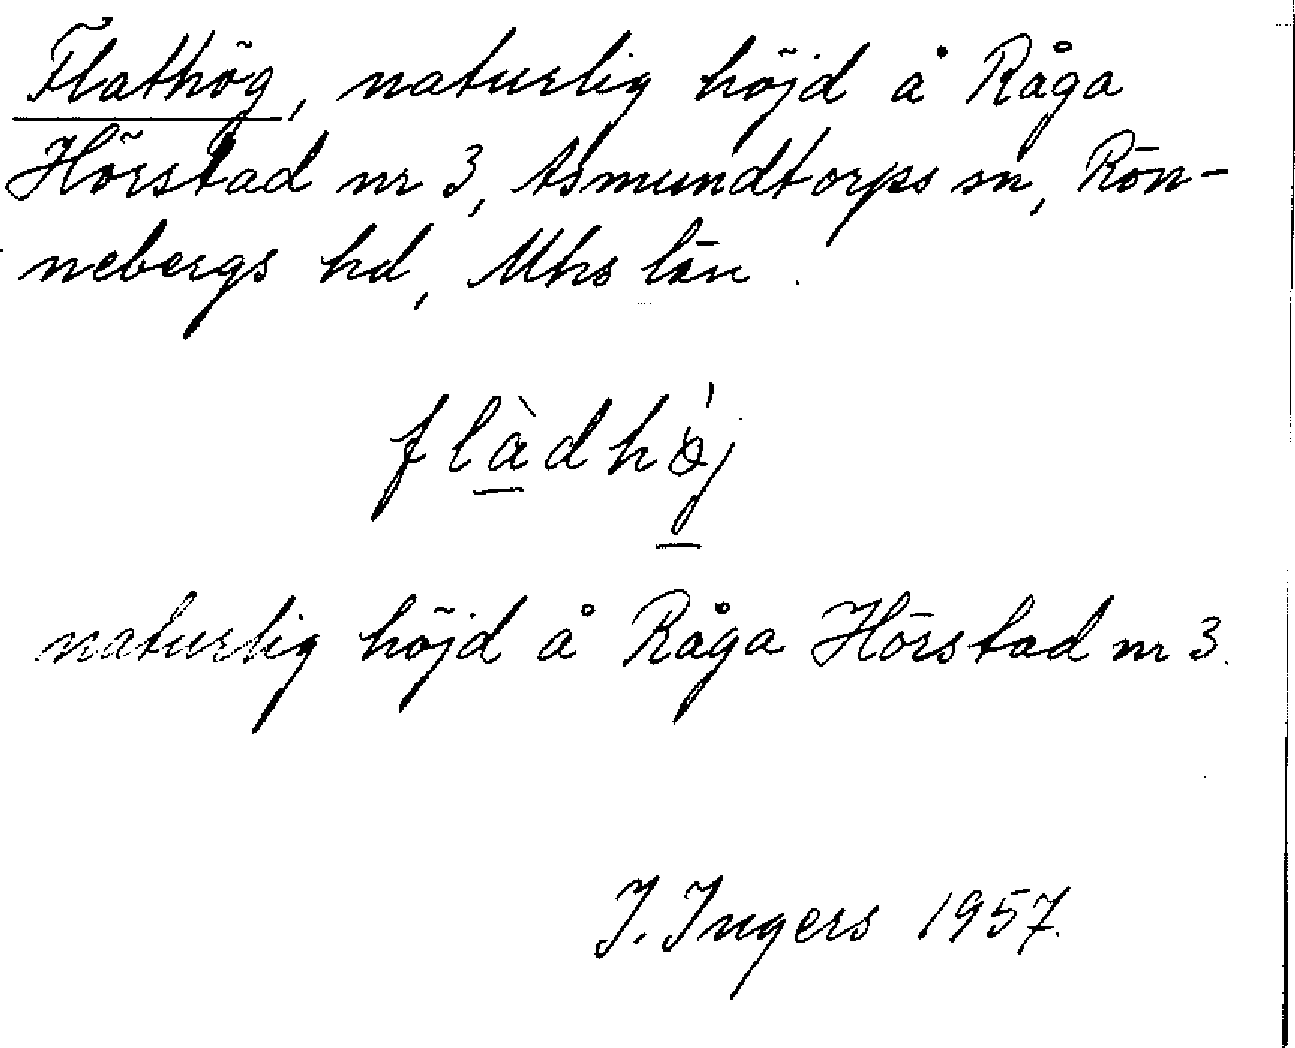 Flathög, naturlig höjd å Råga
Hörstad nr 3, Asmundtorps sn, Rön-
nebergs hd, Mhs län.
flàdhǿj
naturlig höjd å Råga Hörstad nr 3.
J. Ingers 1957.